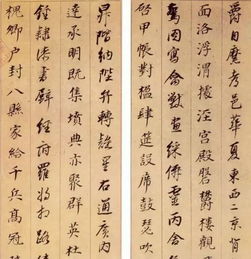 爵自縻都邑華夏東西二京背
面洛浮渭據涇宮殿盤鬱樓觀
驚圖寫禽獸畫綵僊靈丙舍
啓甲帳對楹肆筵設席鼓瑟吹
昇階納陛弁轉疑星右通廣內
達承明既集墳典亦聚群英杜
鍾隸漆書壁經府羅將相路
槐卿戶封八縣家給千兵高冠